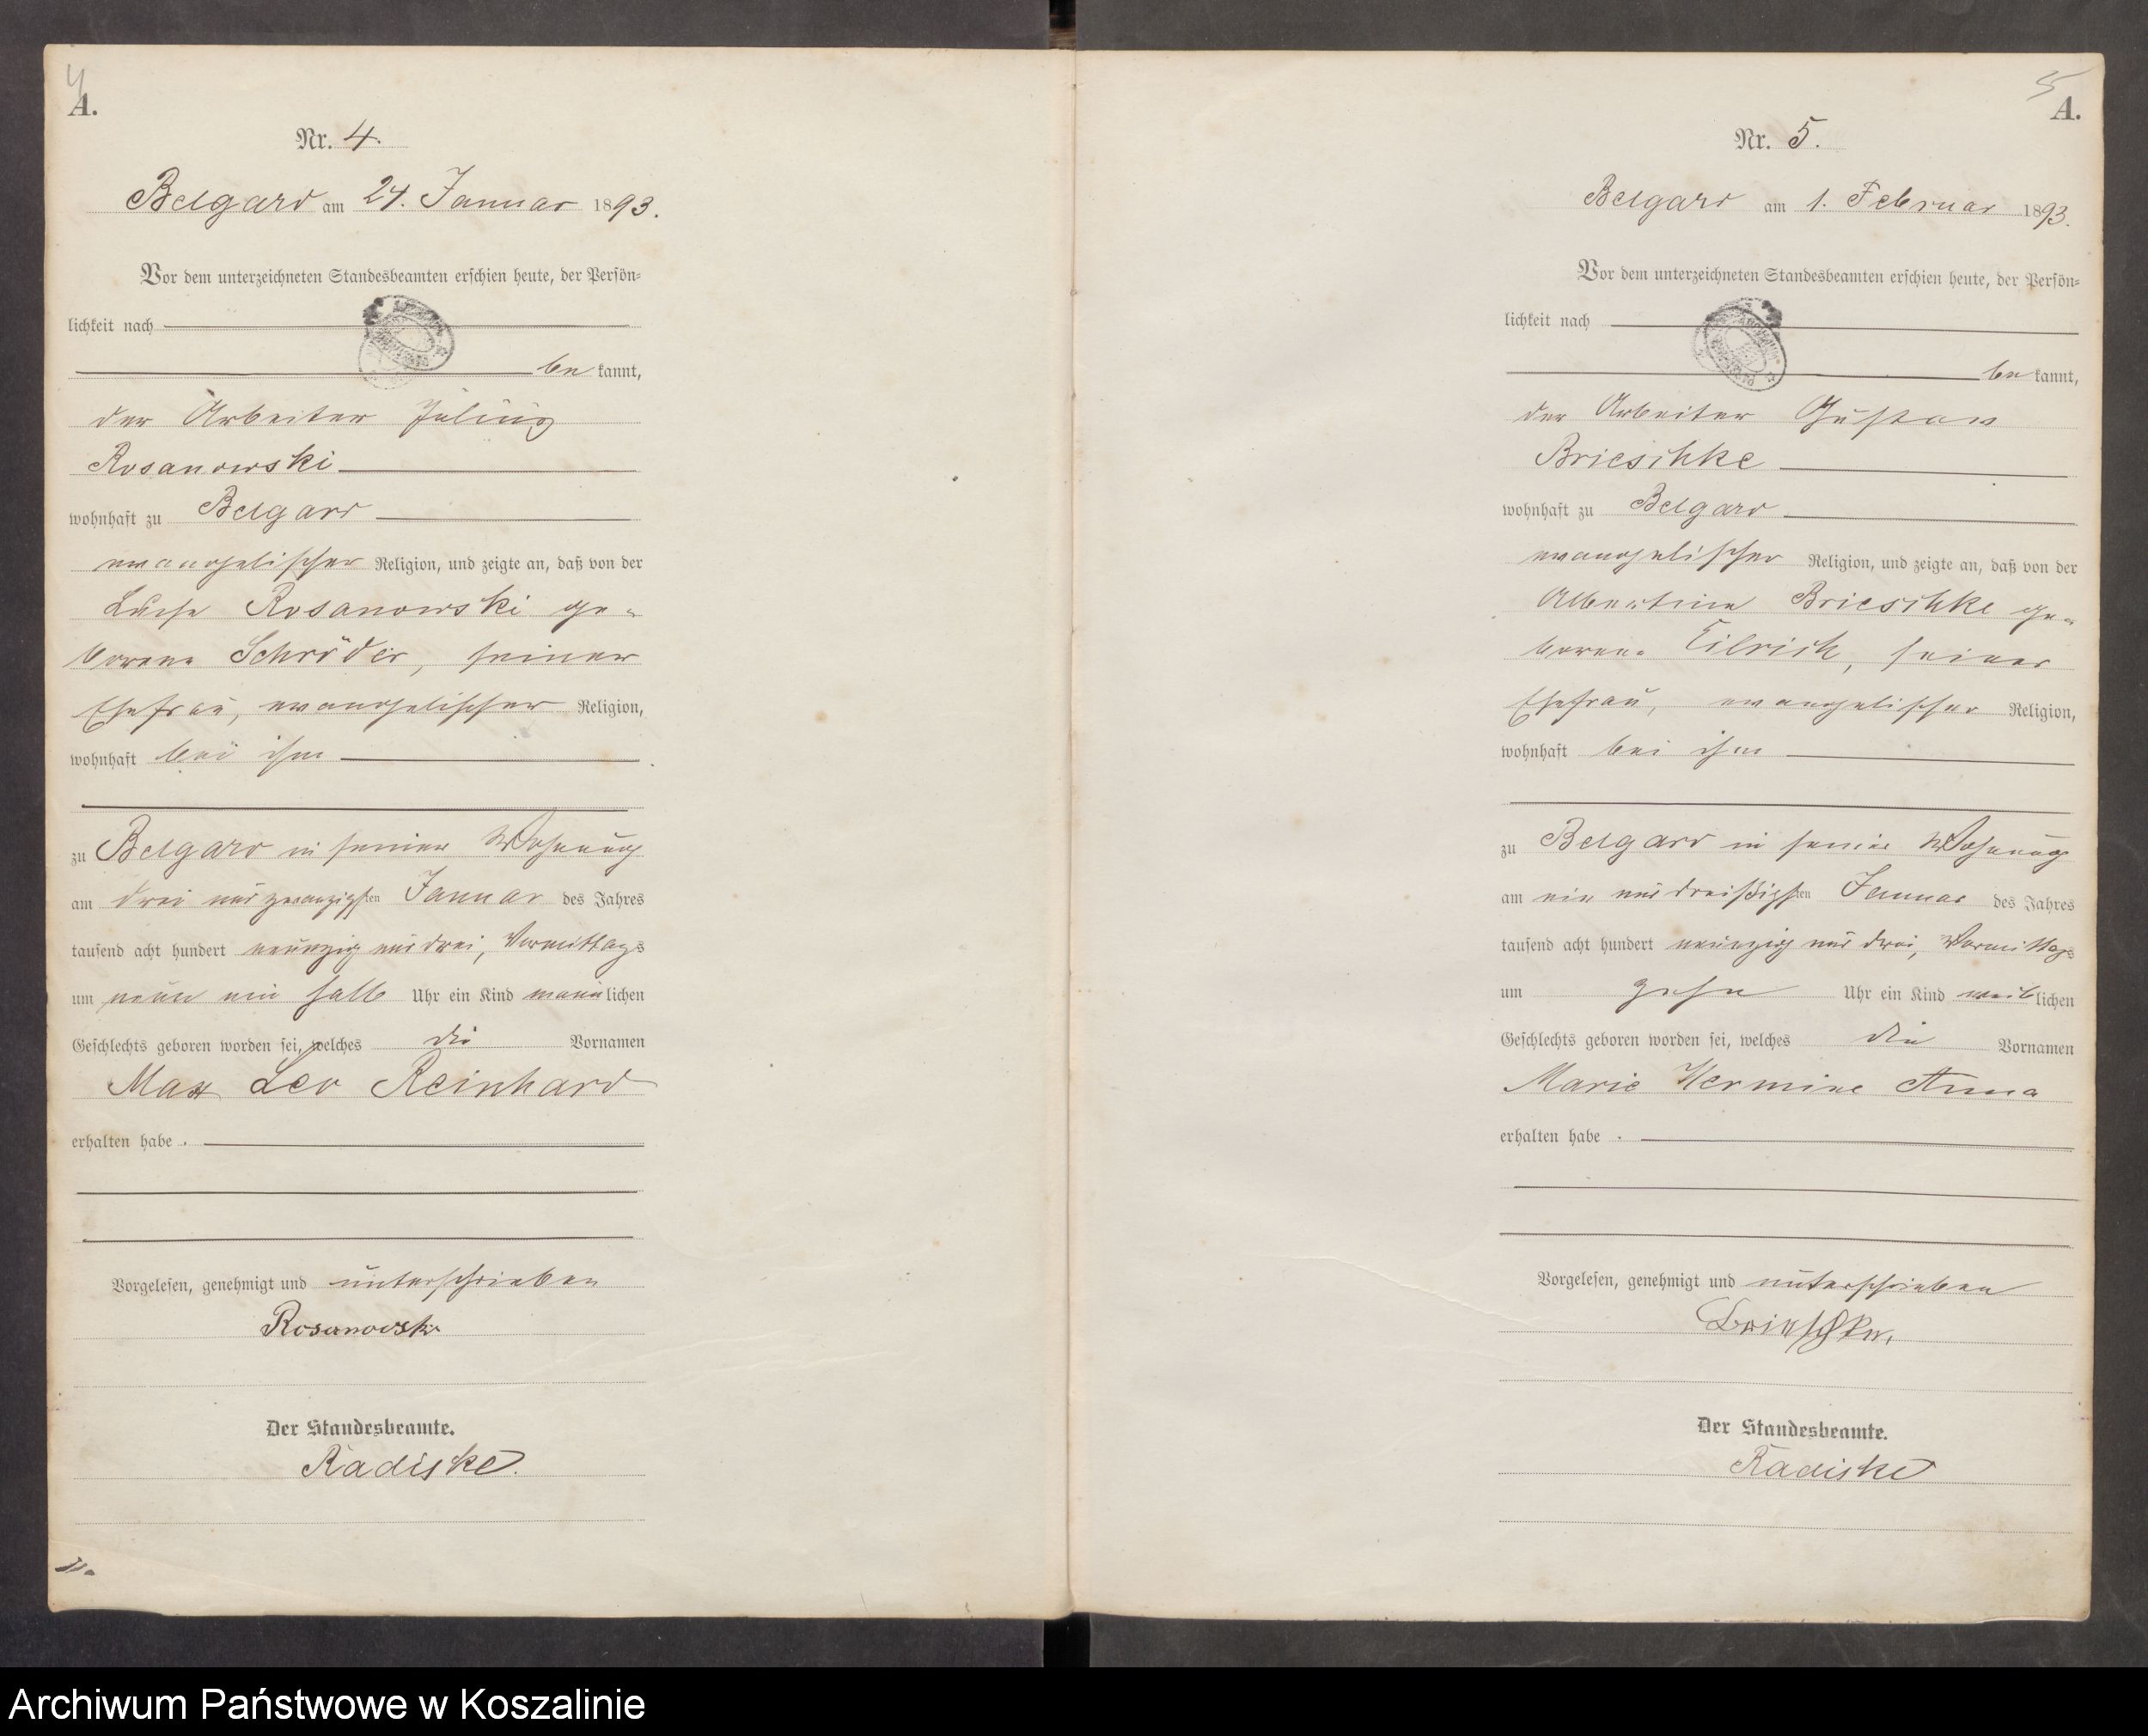 4
A.
Nr. 4.
Belgard am 24. Januar 1893.
Vor dem unterzeichneten Standesbeamten erschien heute, der Persön-
lichkeit nach
be kannt,
der Arbeiter Julius
Rosanowski
wohnhaft zu Belgard
evangelischer Religion, und zeigte an, daß von der
Luise Rosanowski ge-
borene Schröder, seiner
Ehefrau, evangelischer Religion,
wohnhaft bei ihm
zu Belgard in seiner Wohnung
am drei und zwanzigsten Januar des Jahres
tausend acht hundert neunzig und drei, Vormittags
um neun ein halb Uhr ein Kind männlichen
Geschlechts geboren worden sei, welches die Vornamen
Max Leo Reinhard
erhalten habe.
Vorgelesen, genehmigt und unterschrieben
Rosanowski
Der Standesbeamte.
Radiske.
5
A.
Nr. 5.
Belgard am 1. Februar 1893.
Vor dem unterzeichneten Standesbeamten erschien heute, der Persön-
lichkeit nach
be kannt,
der Arbeiter Gustav
Brieschke
wohnhaft zu Belgard
evangelischer Religion, und zeigte an, daß von der
Albertine Brieschke ge-
borene Eilrich, seiner
Ehefrau, evangelischer Religion,
wohnhaft bei ihm
zu Belgard in seiner Wohnung
am ein und dreißigsten Januar des Jahres
tausend acht hundert neunzig und drei, Vormittags
um zehn Uhr ein Kind weiblichen
Geschlechts geboren worden sei, welches die Vornamen
Marie Hermine Anna
erhalten habe.
Vorgelesen, genehmigt und unterschrieben
Brieschke.
Der Standesbeamte.
Radiske
Archiwum Państwowe w Koszalinie